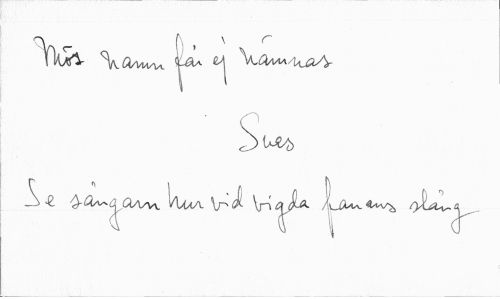 Mös namn får ej nämnas
Sves
Se sångarn hur vid vigda fanans stång